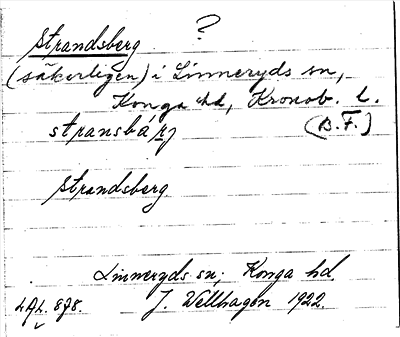 ?
Strandsberg
(säkerligen) i Linneryds sn,
Konga hd, Kronob. l.
stransbárj (B.F.)
Strandsberg
Linneryds sn; Konga hd
J. Wellhagen 1922.